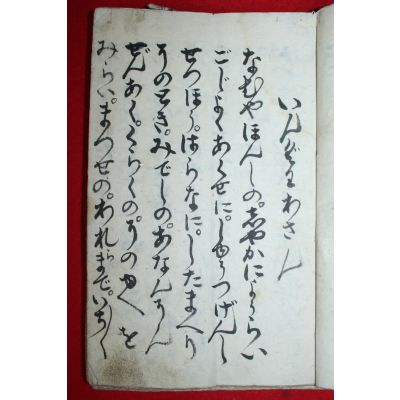 いんぐわわさん
なむやほんしの。志やかによらい
ごじよくあくせに。しゆつげんし
せつほう。はらなに。したまへり
そのとき。みでしの。あなんそん
ぜんあく。くらくの。そのゆへを
みらい。まつせの。われらまで。いちく